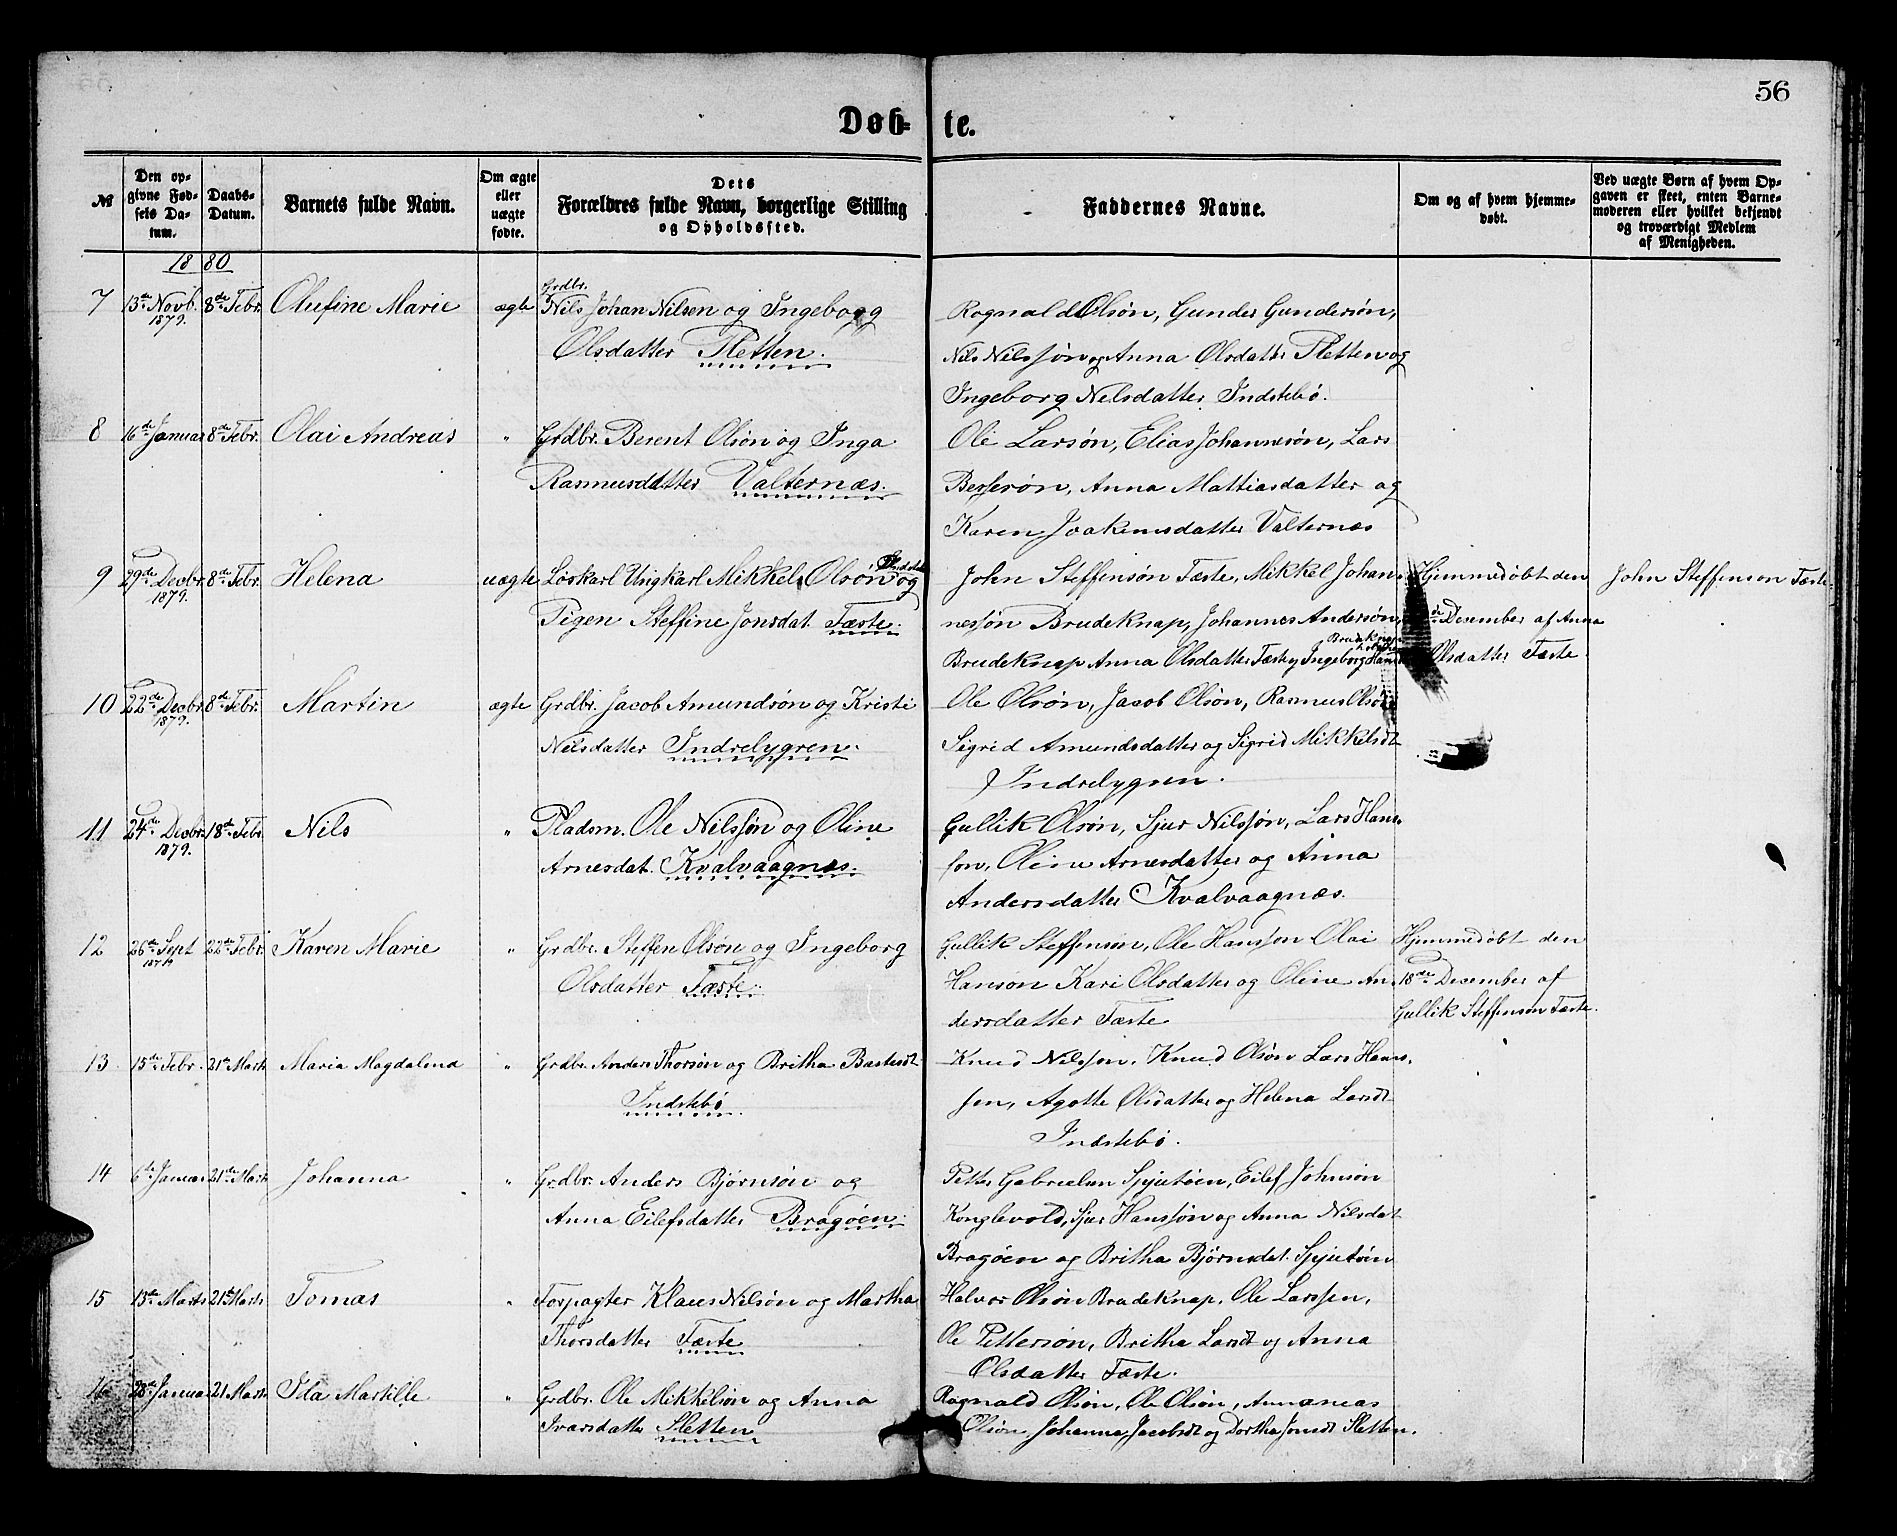 56
Døb- te.
№
Den opgivne Fødsels Datum.
Daabs-Datum.
Barnets fulde Navn.
Om ægte eller uægte fødte.
Dets Forældres fulde Navn, borgerlige Stilling og Opholdssted.
Faddernes Navne.
Om og af hvem hjemmedøbt.
Ved uægte Børn af hvem Opgaven er skeet, enten Barnemoderen eller hvilket bekjendt og troværdigt Medlem af Menigheden.
1880
7 13de Novb. 1879. 8de Febr. Olufine Marie ægte Grdbr. Nils Johan Nilsen og Ingeborg
Olsdatter Sletten.
Rognald Olsøn, Gunder Gundersøn,
Nils Nilssøn og Anna Olsdatter Sletten og
Ingeborg Nelsdatter Indstebø.
8 16de Januar 8de Febr. Olai Andreas " Grdbr. Berent Olsøn og Inga
Rasmusdatter Valternæs.
Ole Larsøn, Elias Johannesøn, Lars
Berssøn, Anna Mattiasdatter og
Karen Joakimsdatter Valternæs
9 29de Decbr. 1879. 8de Febr. Helena uægte Løskarl Ungkarl Mikkel Olsøn og
Pigen Steffine Jonsdat. Tæste.
John Steffensøn Tæste, Mikkel Johan-
nessøn Brudeknap, Johannes Andersøn,
Brudeknap Anna Olsdatter Tæste og Ingeborg Hansd. Brudeknap
Hjemmedøbt den
de December af Anna
Olsdatter Tæste.
John Steffenson Tæste.
10 22de Decbr. 1879. 8de Febr. Martin ægte Grdbr. Jacob Amundsøn og Kristi
Nilsdatter Indrelygren.
Ole Olsøn, Jacob Olsøn, Rasmus Olsøn
Sigrid Amundsdatter og Sigrid Mikkelsdt
Indrelygren.
11 24de Decbr. 1879. 18de Febr. Nils " Pladsm. Ole Nilssøn og Oline
Arnesdat. Kvalvaagnæs.
Gullik Olsøn, Sjur Nilssøn, Lars Hans-
søn, Oline Arnesdatter og Anna
Andersdatter Kvalvaagnæs.
12 26de Sept 1879 22de Febr. Karen Marie " Grdbr. Steffen Olsøn og Ingeborg
Olsdatter Tæste.
Gullik Steffensøn, Ole Hanssøn Olai
Hansøn Kari Olsdatter og Oline An-
dersdatter Tæste
Hjemmedøbt den
18de December af
Gullik Steffenson Tæste.
13 15de Febr. 21de Marts Maria Magdalena " Grdbr. Anders Thorsøn og Britha Bastesdt
Indstebø.
Knud Nilssøn, Knud Olsøn Lars Hans-
søn, Agotte Olsdatter og Helena Larsdt
Indstebø.
14 6de Januar 21de Marts Johanna " Grdbr. Anders Bjørnsøn og
Anna Eilefsdatter Bragøen.
Petter Gabrielsen Spjutøen, Eilef Johnsøn
Konglevold, Sjur Hanssøn og Anna Nilsdat
Bragøen og Britha Bjørnsdat. Spjutøen
15 13de Marts 21de Marts Tomas " Forpagter Klaus Nilsøn og Martha
Thorsdatter Tæste
Halvor Olsøn Brudeknap, Ole Larssen,
Ole Pettersøn, Britha Larsdt og Anna
Olsdatter Tæste.
16 28de Januar 21 Marts Ida Martille " Grdbr. Ole Mikkelsøn og Anna
Ivarsdatter Sletten
Rognald Olsøn, Ole Olsøn, Annanias
Olsøn, Johanna Jacobsdt og Dortha Jonsdt Sletten.